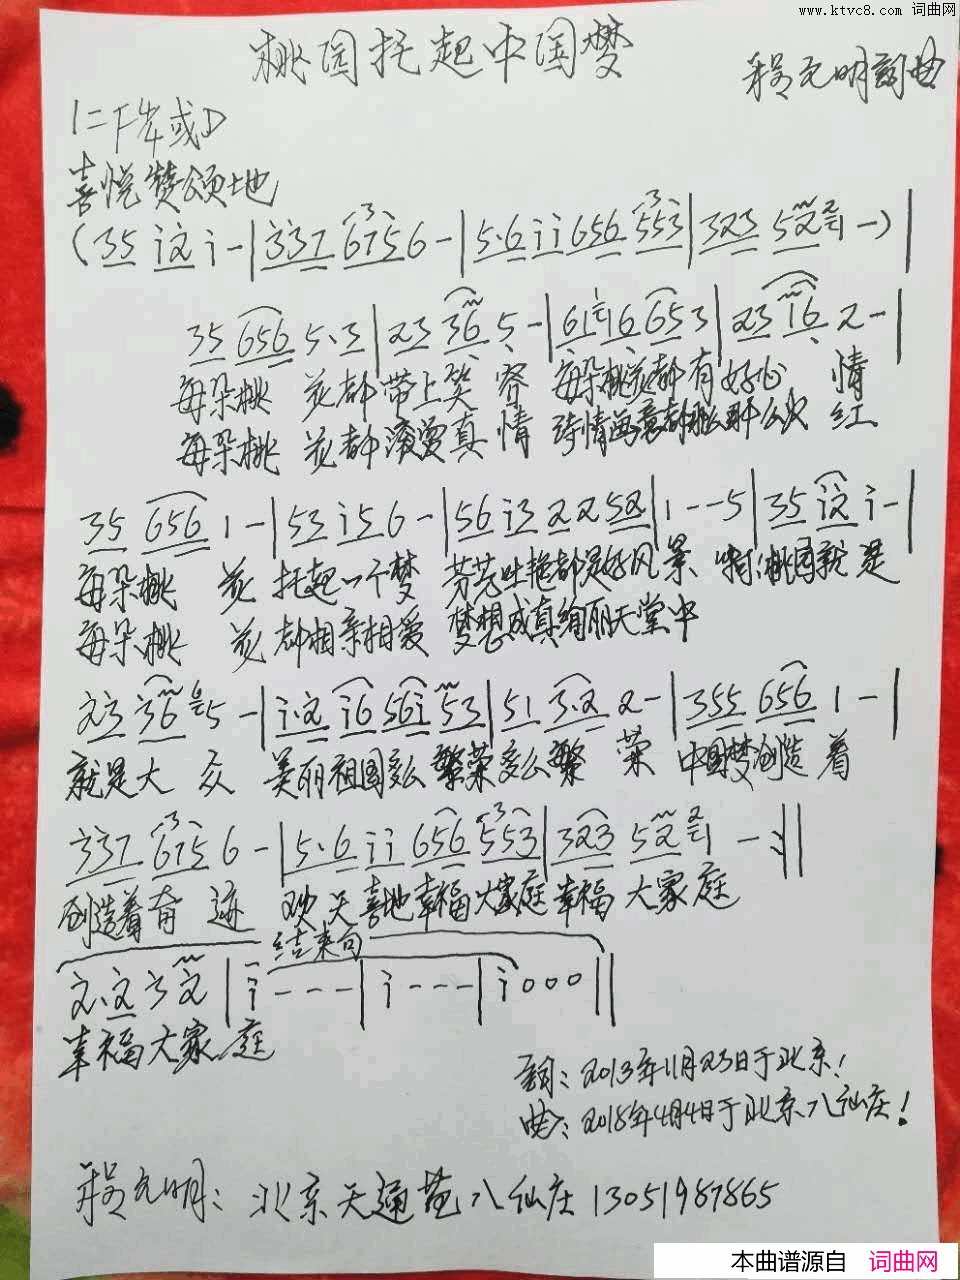 www.ktvc8.com 词曲网
桃园托起中国梦
程元明词曲
1=F 4/4或D
喜悦赞颂地
(35 i2 i - | 337 6756 - | 5·6 ii 656 553 | 323 52 21 - ) |
35 656 5·3 | 23 36 5 - | 61 16 653 | 23 16 2 - |
每朵桃 花都带上笑 容 每朵桃花都有好心 情
每朵桃 花都滚烫真 情 诗情画意都那么火 红
35 656 1 - | 53 i5 6 - | 56 i3 22 52 | 1 - - 5 | 35 i2 i - |
每朵桃 花 托起一个梦 芬芳吐艳都是好风景 啊 桃园就是
每朵桃 花 都相亲相爱 梦想成真绚丽天堂中
23 36 65 - | i·2 i6 56i 53 | 51 3·2 2 - | 355 656 1 - |
就是大 众 美丽祖国多么繁荣多么繁 荣 中国梦创造 着
337 6756 - | 5·6 ii 656 553 | 323 52 21 - :||
创造着奇 迹 欢天喜地幸福大家庭幸福 大家庭
结束句
2·2 3 2 | i - - - | i - - - | i 0 0 0 ||
幸福大家 庭
词:2013年11月23日于北京!
曲:2018年4月4日于北京八仙庄!
程元明:北京天通苑八仙庄 13051987865
本曲谱源自 词曲网